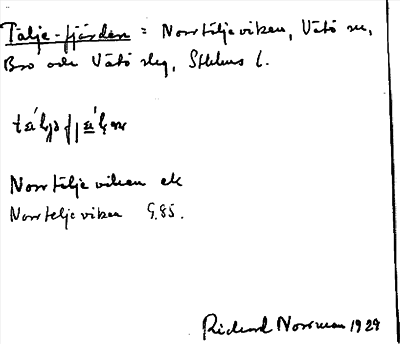 Tälje-fjärden = Norrtäljeviken, Vätö sn,
Bro och Vätö skg, Sthlms l.
Norrtälje viken ek
Norrtelje viken G.85.
Rickard Norrman 1929